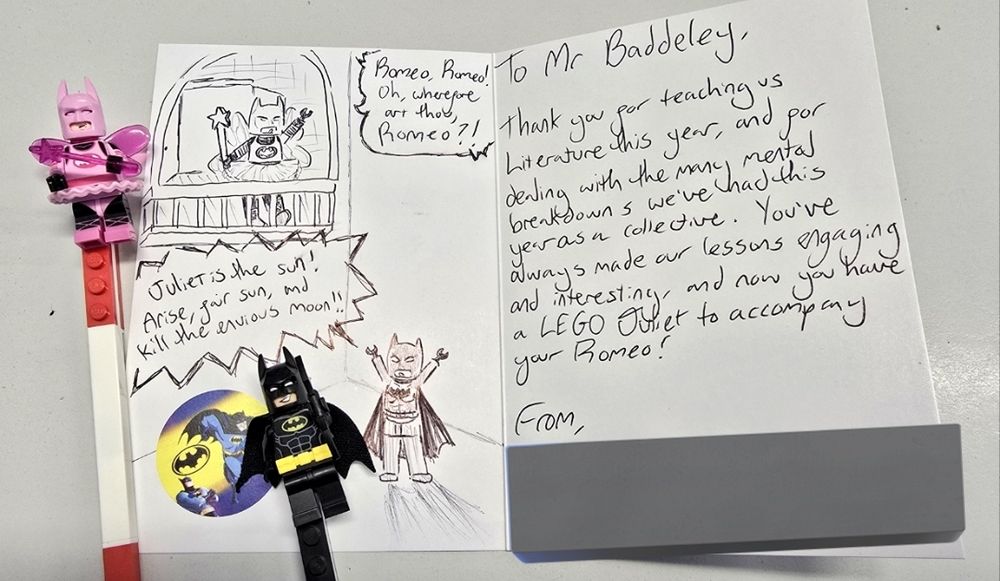 Romeo, Romeo!
Oh, wherefore
art thou,
Romeo?!
Juliet is the sun!
Arise, fair sun, and
kill the envious moon!!
To Mr Baddeley,
Thank you for teaching us
Literature this year, and for
dealing with the many mental
breakdowns we've had this
year as a collective. You've
always made our lessons engaging
and interesting, and now you have
a LEGO Juliet to accompany
your Romeo!
From,